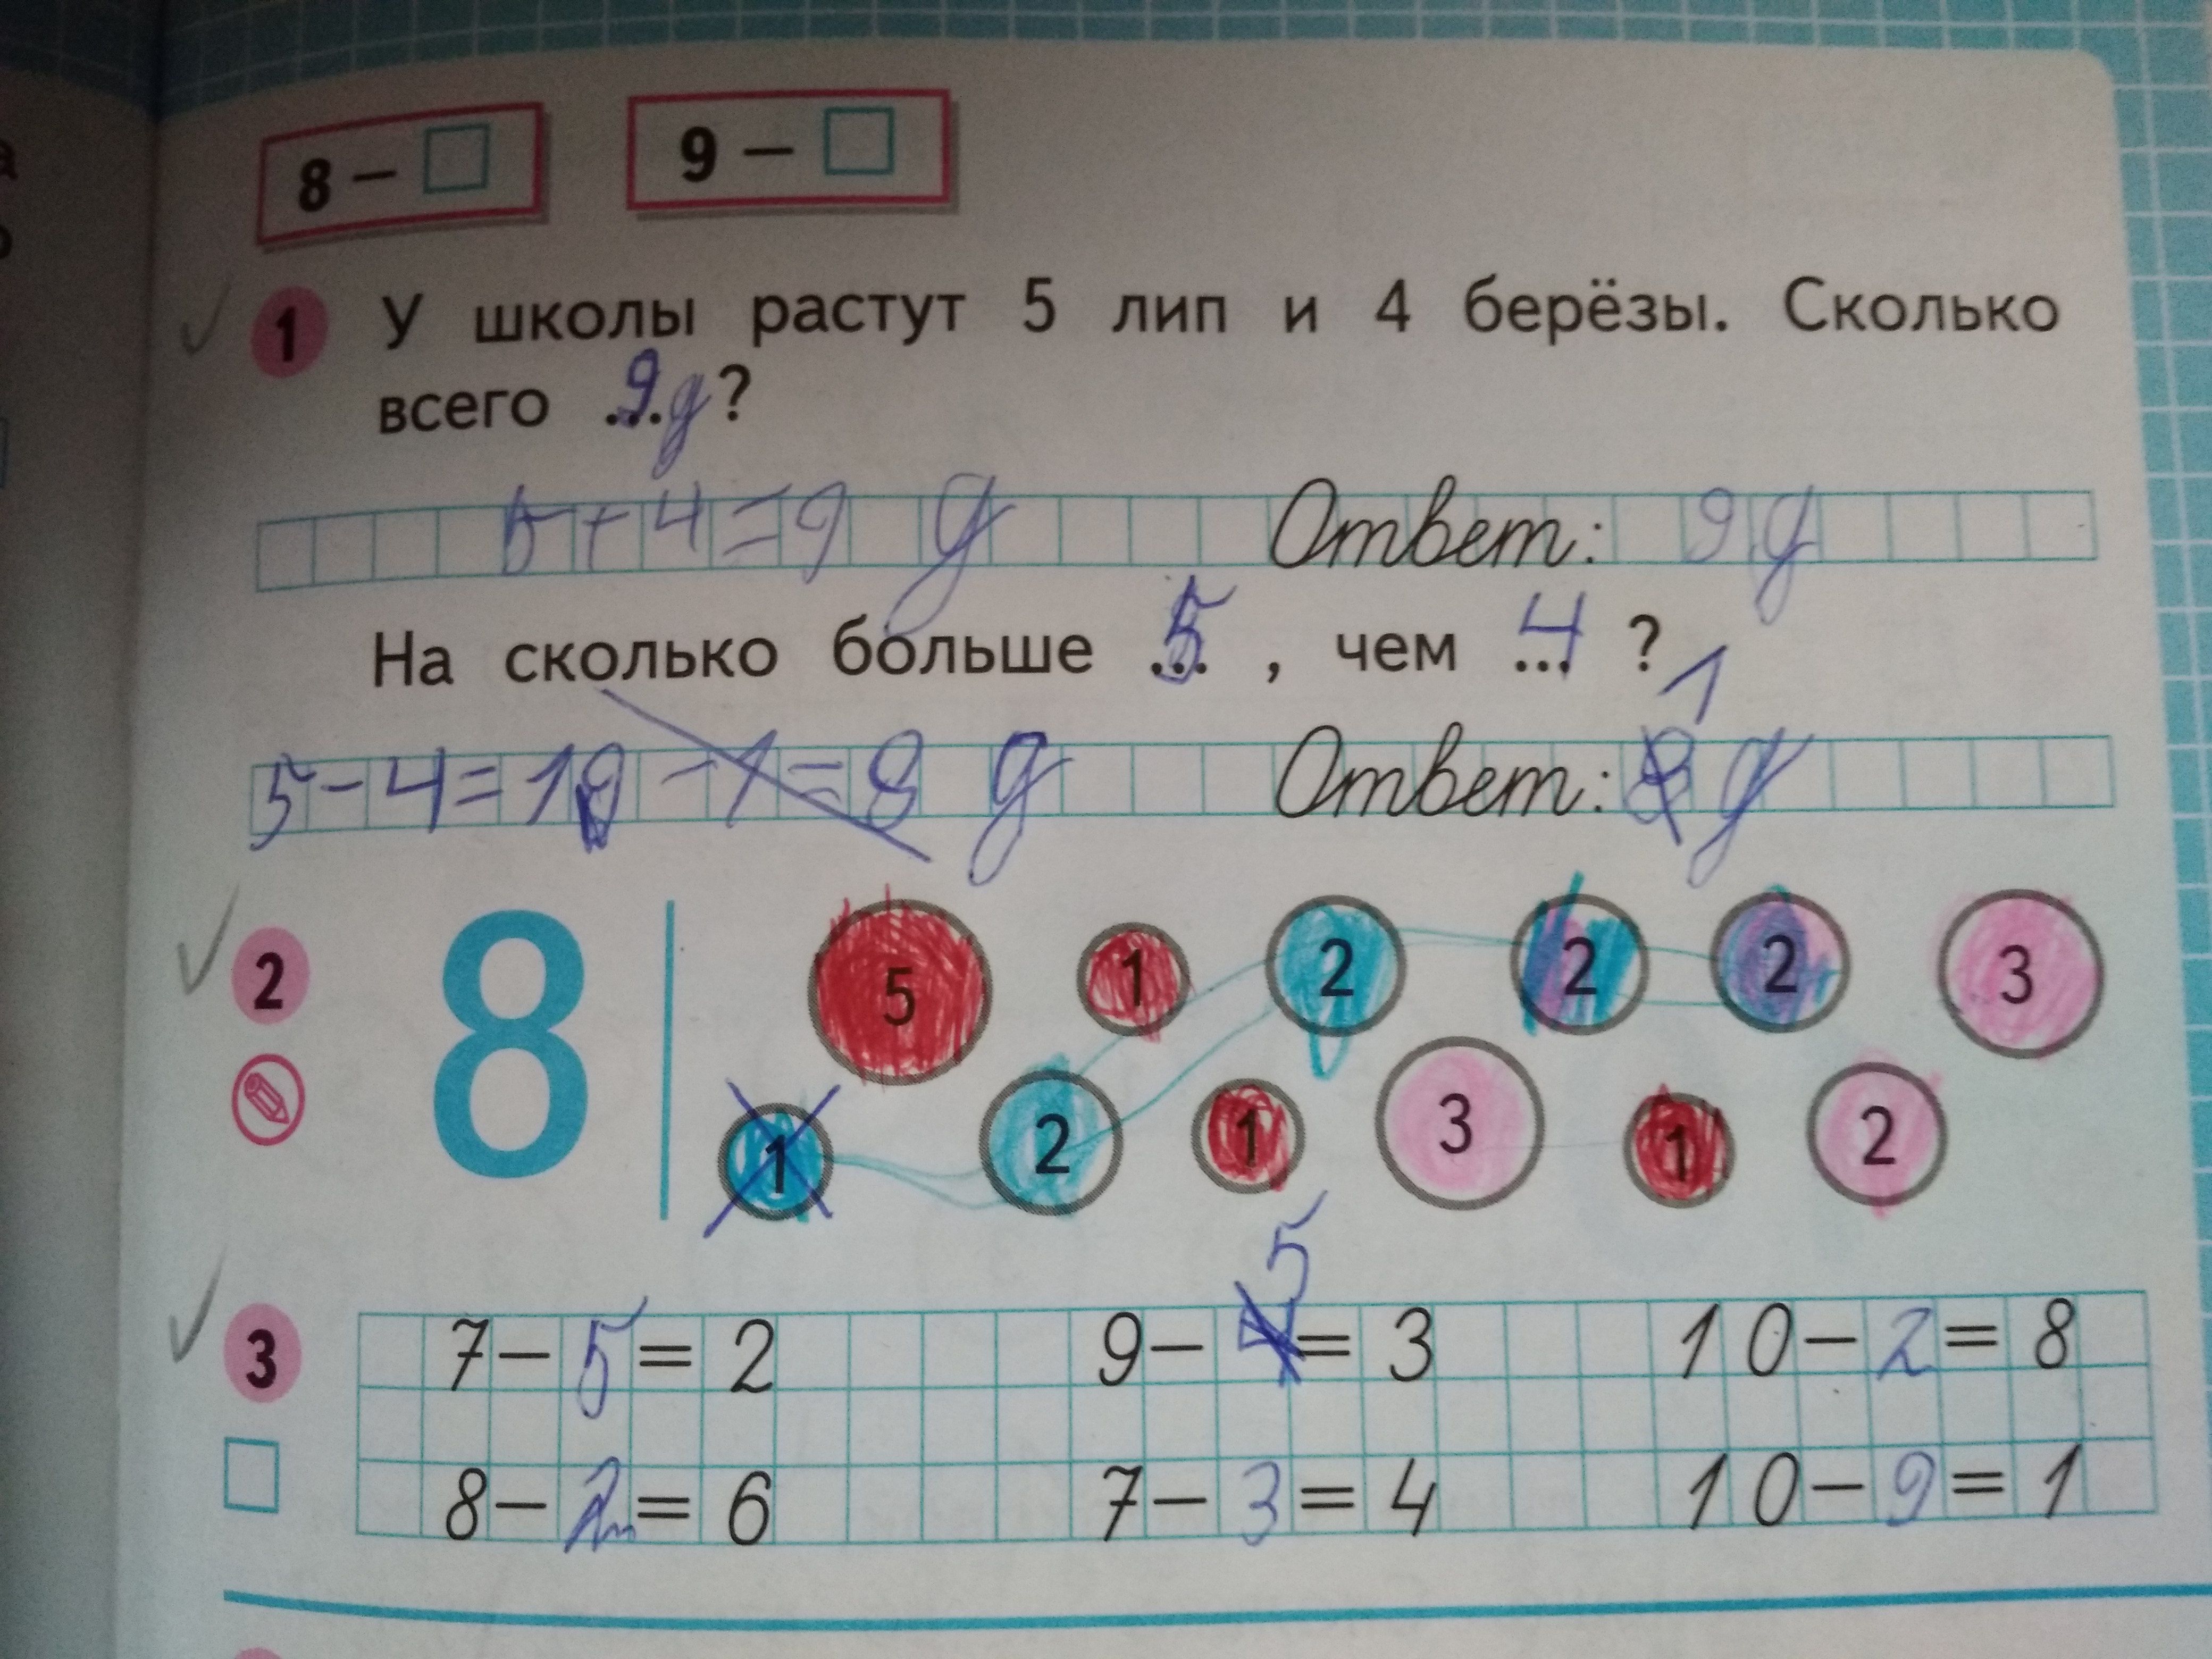 8 – □ 9 – □
1 У школы растут 5 лип и 4 берёзы. Сколько
всего ... 9 д ?
5+4=9 д Ответ: 9 д
На сколько больше ... 5 , чем ... 4 ?
1
5-4=1 -1=8 д Ответ: 8 д
2 8 5 1 2 2 2 3
1 2 1 3 1 2
5
3 7-5=2 9-4=3 10-2=8
8-2=6 7-3=4 10-9=1